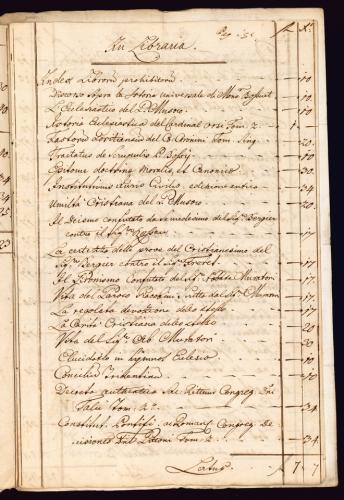 In Libraria.
Index Librorū prohibitorū — 10
Discorso sopra la Istoria universale di Mons. Bossuet — 10
L'Ecclesiastico del P. — 10
Istoria Ecclesiastica del Cardinal Orsi Tom. 2. — 1 —
Tom. — 20
Tractatus de scrupulis P. — 10
Epitome doctrinæ moralis, et Canonicæ — 30
Institutiones Juris Civilis, edizione antica — 34
Umiltà Cristiana del P. — 20
Il Deismo confutato da se medesimo del Sig. Bergier
contro il Sig. — 17
La certezza delle prove del Cristianesimo del
Sig. Bergier contro il Sig. Freret — 17
Il Pironismo confutato del Sig. Muratori — 17
Vita del Paroco del Sig. Muratori — 17
La regolata devozione dello stesso — 17
La Carità Cristiana dello stesso — 20
Vita del Sig. Ab. Muratori — 30
in hymnos Ecclesiæ — 10
Concilium Tridentinum — 10
Decreta authentica Sac. Rituum Congreg.
Tom: 2. — 34
Constitut. Pontific. ac Roman. Congreg. De-
cisiones Tom: 2 — 34
7 7